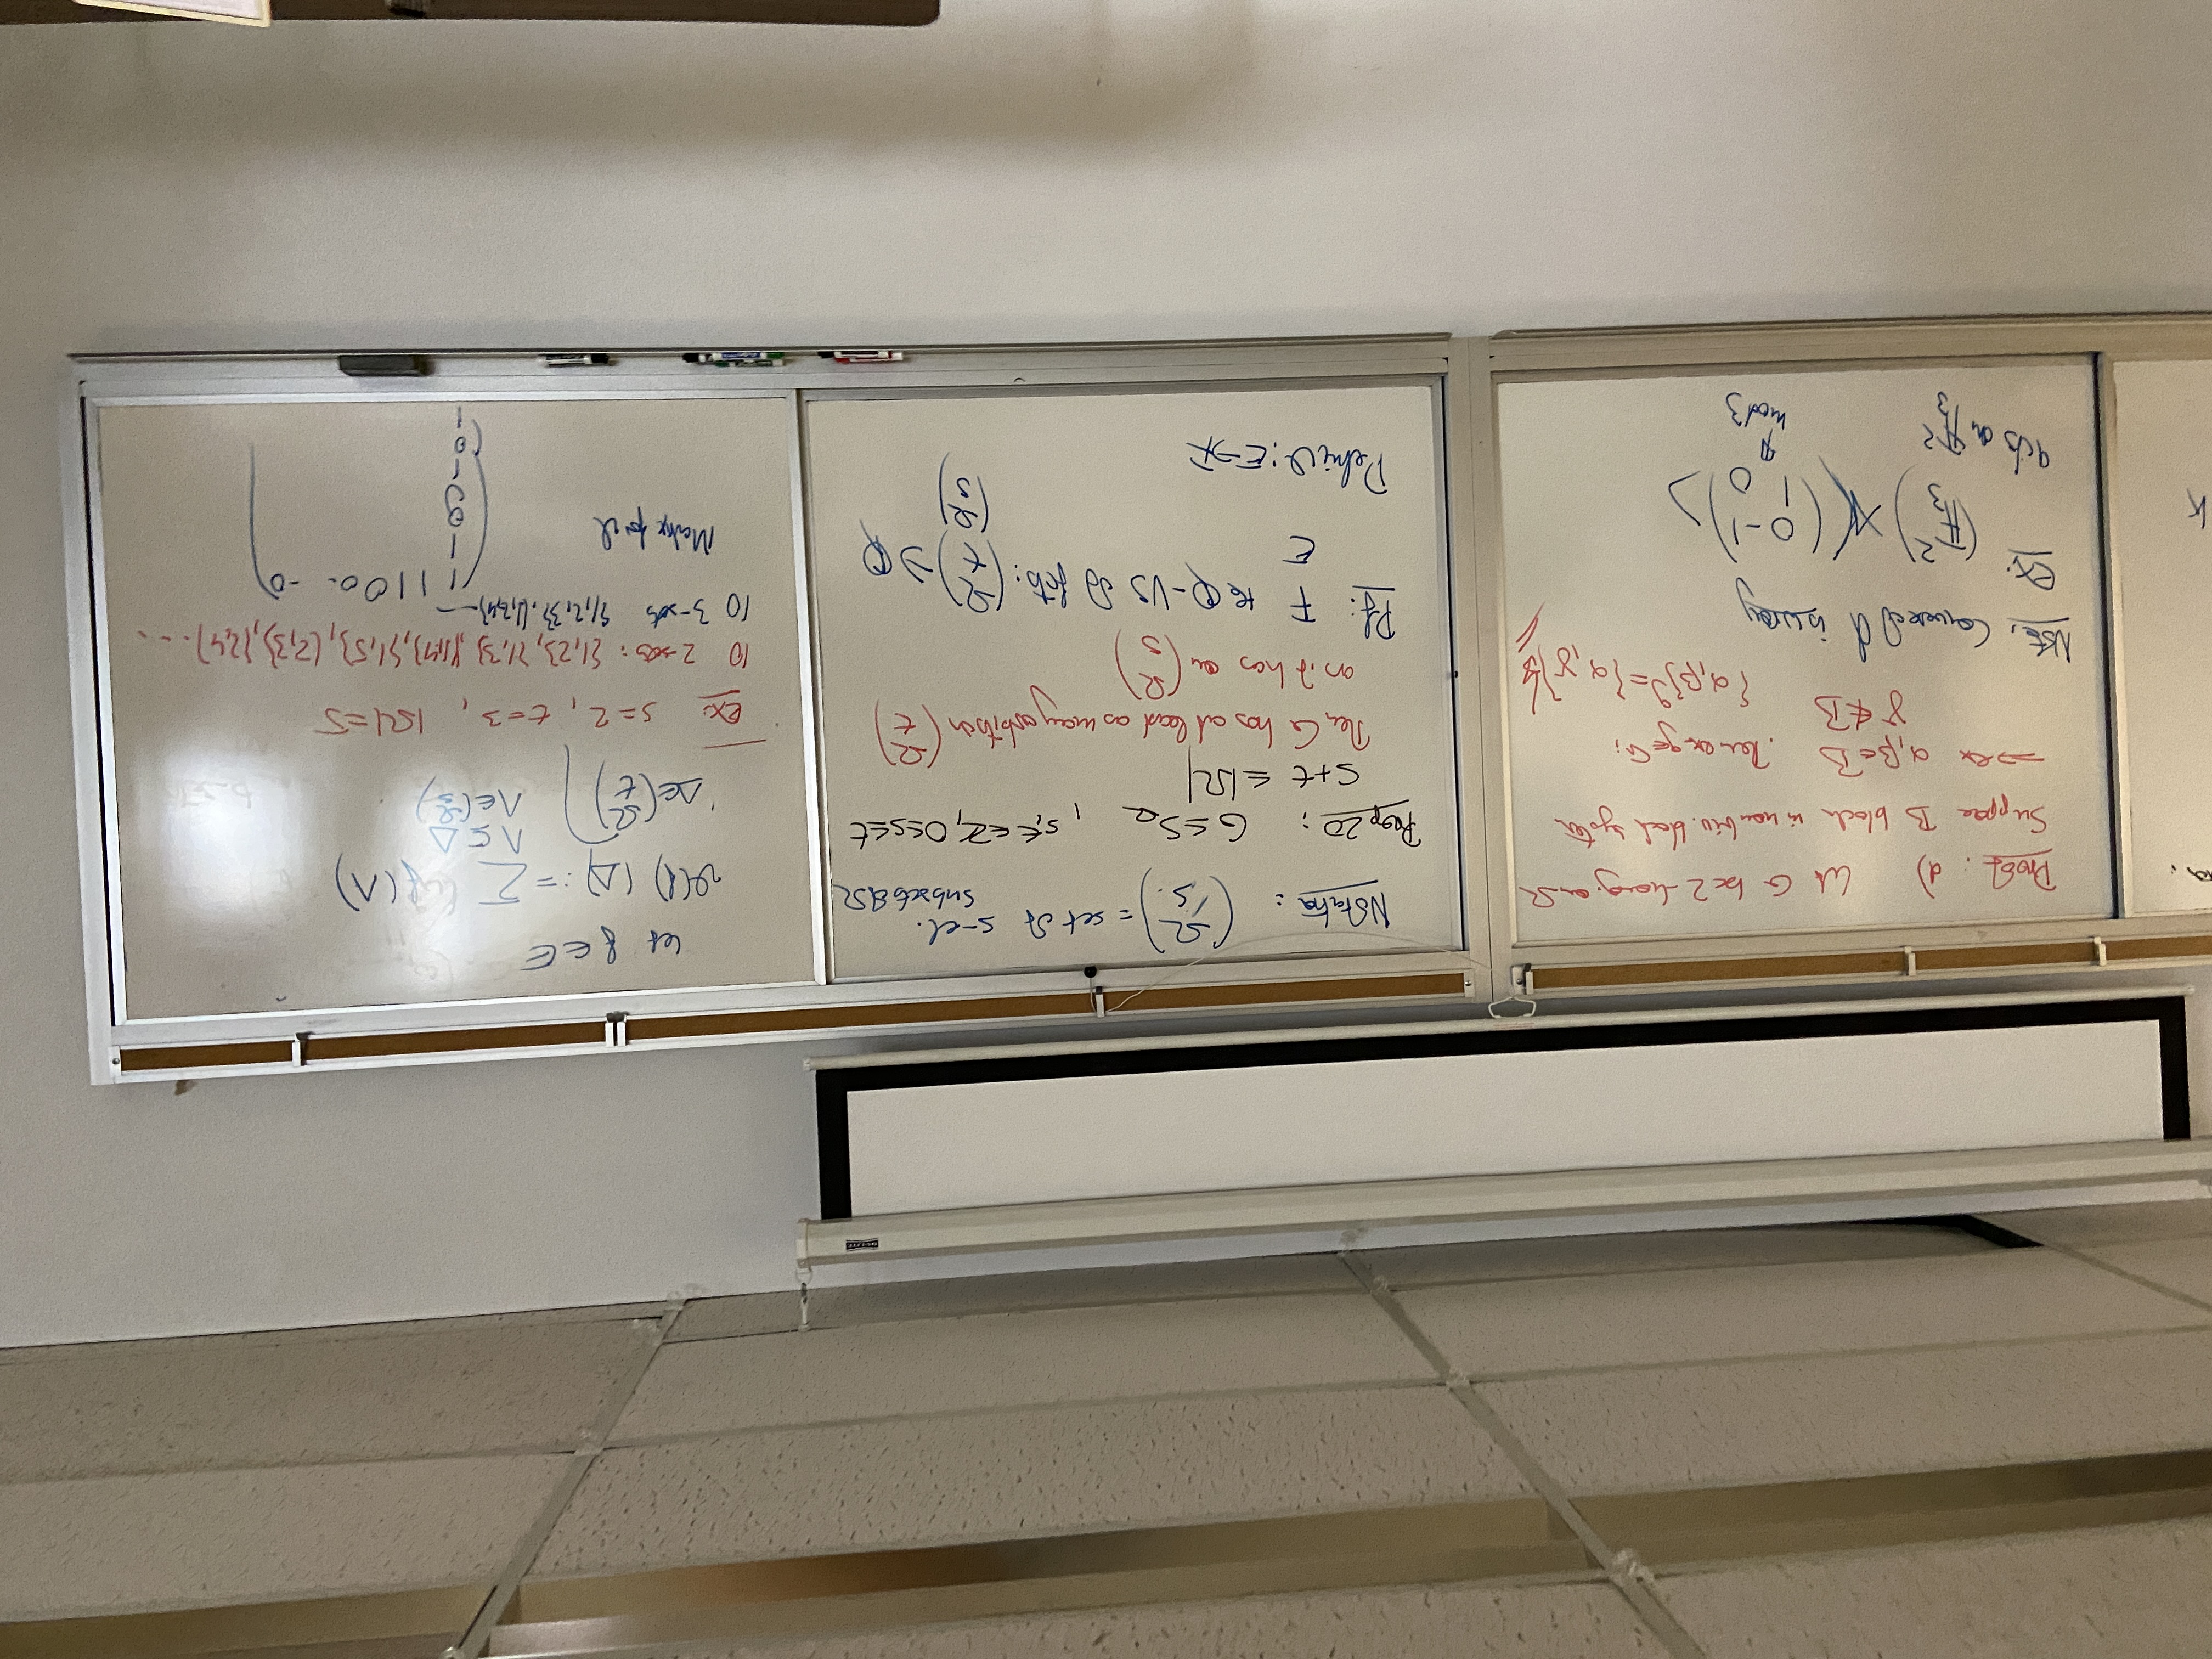 Proof: d) Let G be 2-homog. on Ω
Suppose B block in non triv. block system
⇒ ex α,β∈B . Then ex g∈G:
γ∉B
{α,β}^g={α,γ}
Note, Converse of d is wrong
Ex: (F_3^2) ⋊ ⟨(0 -1
1 0)⟩
acts on F_3^2
mod 3
Notation: (Ω
s) = set of s-el.
subsets of Ω
Prop 20: G≤S_Ω , s,t∈Z, 0≤s≤t
s+t ≤|Ω|
Then G has at least as many orbits on (Ω
t)
as it has on (Ω
s)
Pf: F the Q-VS of fcts: (Ω
t)→Q
E (Ω
s)
Define ϑ: E→F
Let f∈E
ϑ(f) (Δ) := Σ f(Λ)
Λ⊆Δ
Δ∈(Ω
t) Λ∈(Ω
s)
Ex: s=2, t=3, |Ω|=5
10 2-sets: {1,2}, {1,3}, {1,4}, {1,5}, {2,3}, {2,4} ...
10 3-sets {1,2,3}, {1,2,4} ...
Matrix for ϑ